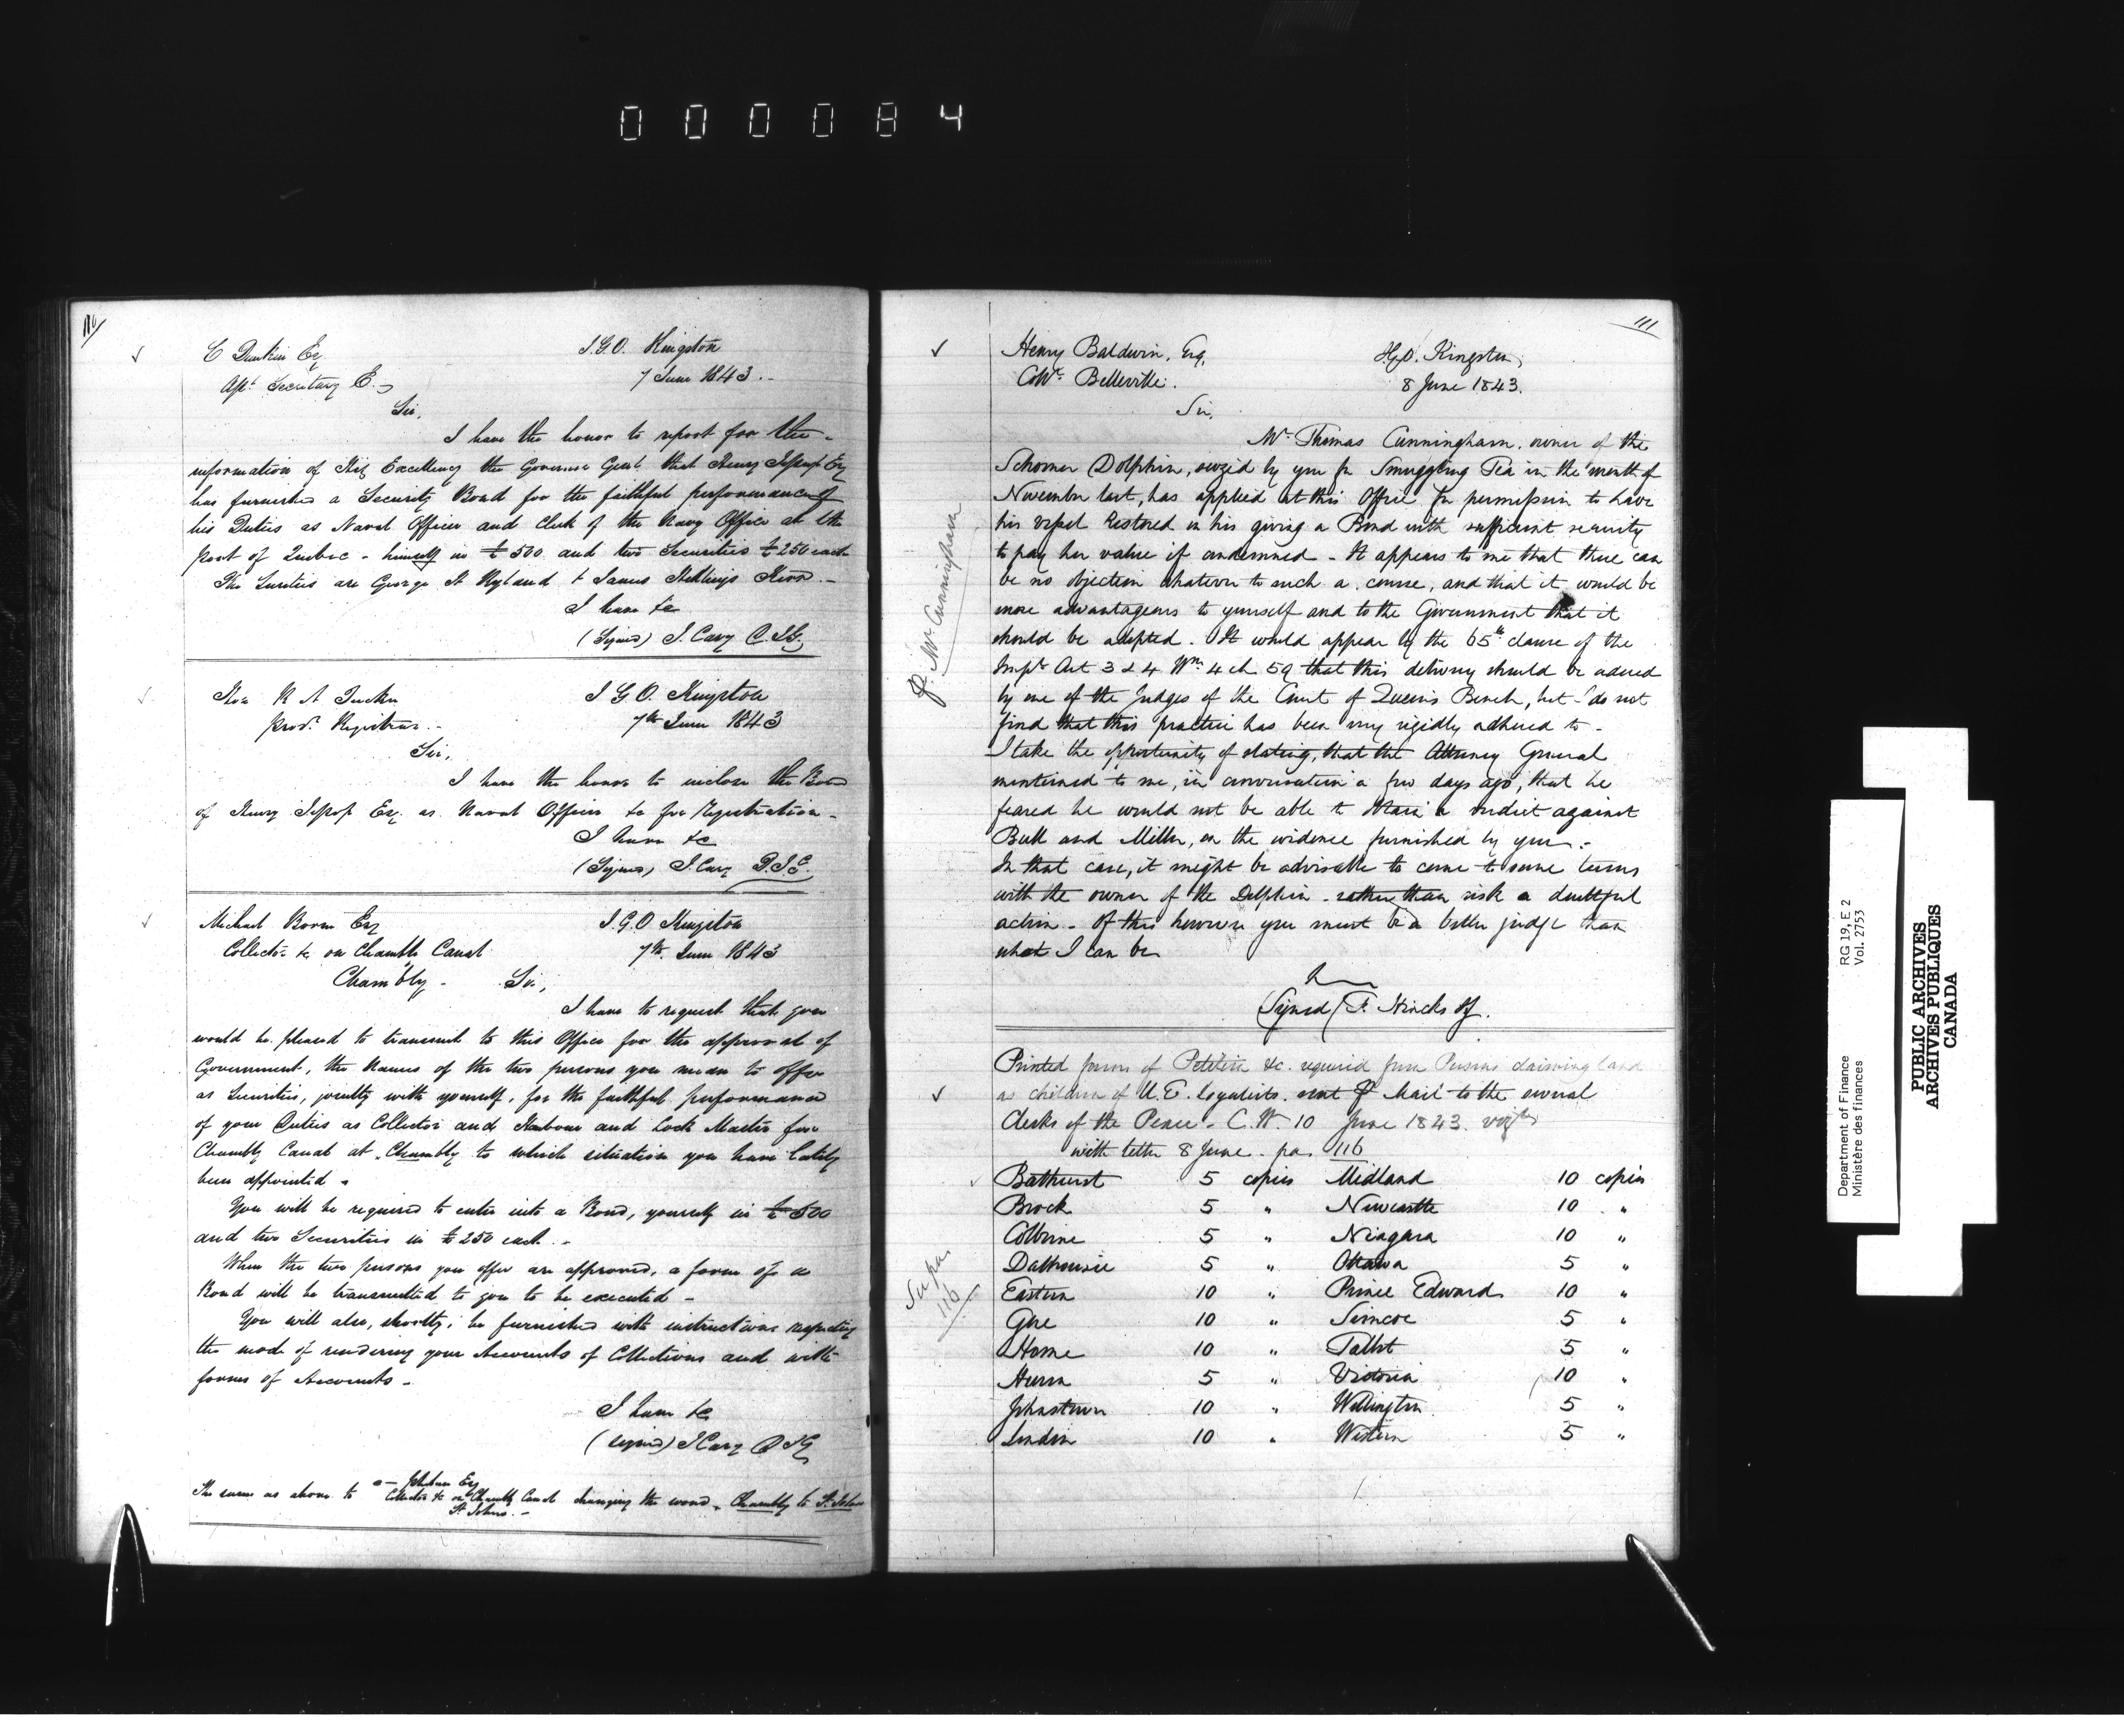 000084
110
C Dunkin Esq
I.G.O. Kingston
Asst. Secretary E.
7 June 1843.
Sir,
I have the honor to report for the
information of His Excellency the Governor Genl. that Henry Jessopp Esq
has furnished a Security Bond for the faithful performance of
his Duties as Naval Officer and Clerk of the Navy Office at the
Port of Quebec - himself in £500 and two Securities £250 each
The Sureties are George H Ryland & James Hastings Kerr.
I have &c
(Signed) J. Cary D.I.G.
Hon R A Tucker
I G O. Kingston
provl. Registrar.
7th June 1843
Sir,
I have the honor to inclose the Bond
of Henry Jessopp Esq. as Naval Officer &c for Registration.
I have &c
(Signed) J. Cary D.I.G.
Michael Esq
I.G.O Kingston
Collector &c on Chambly Canal
7th. June 1843
Chambly - Sir,
I have to request that you
would be pleased to transmit to this Office for the approval of
Government, the Names of the two persons you mean to offer
as Securities, jointly with yourself, for the faithful performance
of your Duties as Collector and Harbour and Lock Master for
Chambly Canal at Chambly to which situation you have lately
been appointed.
You will be required to enter into a Bond, yourself in £500
and two Securities in £250 each.
When the two persons you offer are approved, a form of a
Bond will be transmitted to you to be executed -
You will also, shortly, be furnished with instructions respecting
the mode of rendering your Accounts of Collections and with
forms of Accounts -
I have &c
(signed) J Cary D I G
The same as above to Johnson Esq
Collector &c on Chambly Canal changing the word Chambly to St. Johns
St. Johns. -
111
Henry Baldwin, Esq.
I.G.O. Kingston,
Collr. Belleville.
8 June 1843.
Sir,
Mr. Thomas Cunningham, owner of the
Schooner Dolphin, seized by you for Smuggling Tea in the month of
November last, has applied at this Office for permission to have
his vessel restored on his giving a Bond with sufficient security
to pay her value if condemned - It appears to me that there can
be no objection whatever to such a course, and that it would be
more advantageous to yourself and to the Government that it
should be adopted. It would appear by the 65th clause of the
Impl. Act 3 & 4 Wm. 4 ch 59 that this delivery should be ordered
by one of the Judges of the Court of Queen's Bench, but I do not
find that this practice has been very rigidly adhered to -
I take the opportunity of stating, that the Attorney General
mentioned to me, in conversation a few days ago, that he
feared he would not be able to obtain a verdict against
Bull and Miller, on the evidence furnished by you -
In that case, it might be advisable to come to some terms
with the owner of the Dolphin - rather than risk a doubtful
action - Of this however you must be a better judge than
what I can be
(Signed) F. Hincks IG.
p. Mr. Cunningham
Printed forms of Petition &c. required from Persons claiming land
as children of U.E. Loyalists. sent P mail to the several
Clerks of the Peace - C.W. 10 June 1843. vizt
with letter 8 June - pa. 116
Bathurst 5 copies Midland 10 copies
Brock 5 " Newcastle 10 "
Colborne 5 " Niagara 10 "
Dalhousie 5 " Ottawa 5 "
Eastern 10 " Prince Edward 10 "
Gore 10 " Simcoe 5 "
Home 10 " Talbot 5 "
Huron 5 " Victoria 10 "
Johnstown 10 " Wellington 5 "
London 10 " Western 5 "
116
Department of Finance RG 19, E 2
Ministère des finances Vol. 2753
PUBLIC ARCHIVES
ARCHIVES PUBLIQUES
CANADA